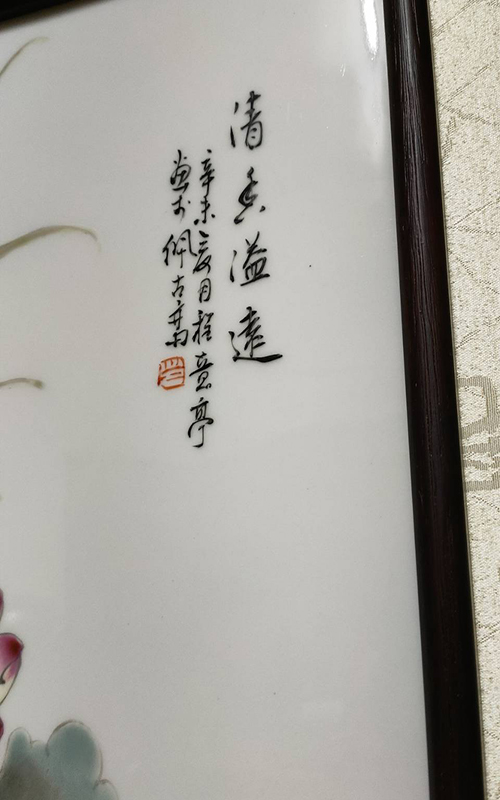 清香溢遠
辛未夏月程意亭
畫於佩古齋